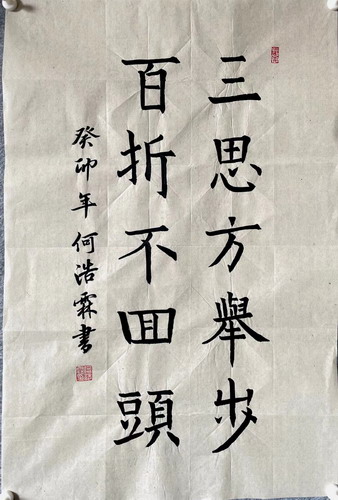 三思方舉步
百折不回頭
癸卯年何浩霖書